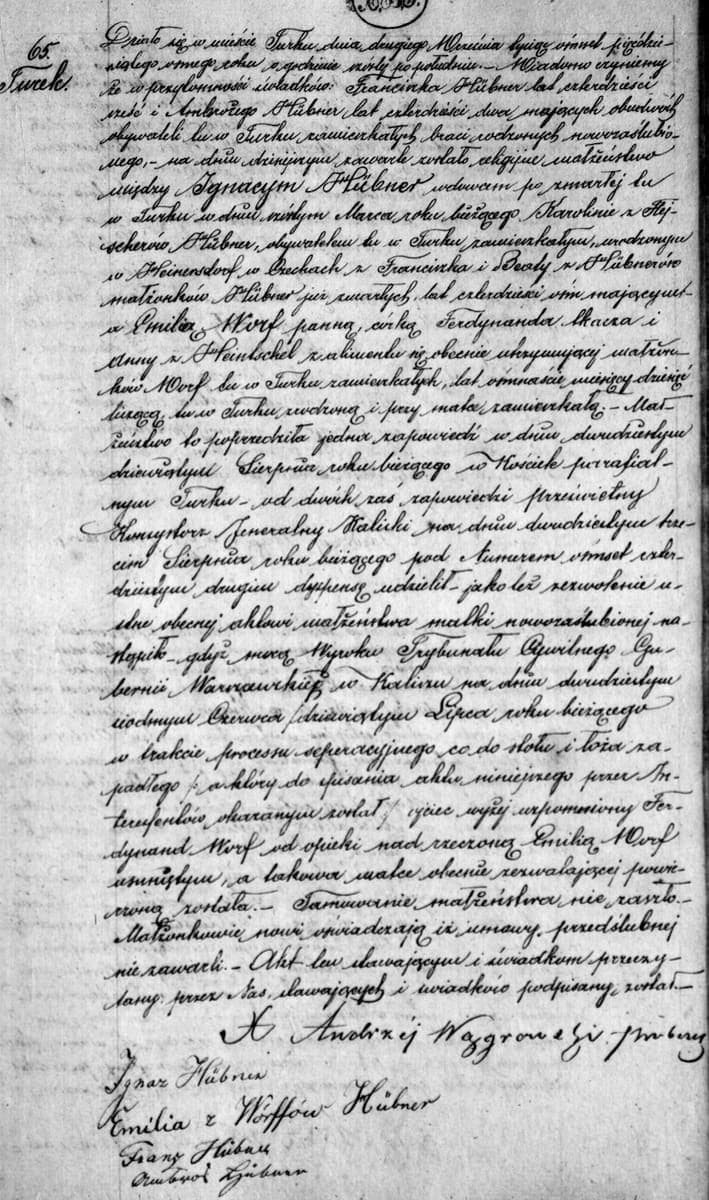 65.
Turek.
Działo się w mieście Turku dnia drugiego Września tysiąc ośmset pięćdzie-
siątego ósmego roku o godzinie szóstej po południu. – Wiadomo czyniemy
że w przytomności świadków: Franciszka Hübner lat czterdzieści
sześć i Ambrożego Hübner lat czterdzieści dwa mających obudwóch
obywateli tu w Turku zamieszkałych braci rodzonych nowozaślubio-
nego, – na dniu dzisiejszym zawarte zostało religijne małżeństwo
między Ignacym Hübner wdowcem po zmarłej tu
w Turku w dniu szóstym Marca roku bieżącego Karolinie z Flej-
scherów Hübner, obywatelem tu w Turku zamieszkałym, urodzonym
w Heinersdorf w Czechach z Franciszka i Beaty z Hübnerów
małżonków Hübner już zmarłych, lat czterdzieści ośm mającym –
a Emilią Worf panną, córką Ferdynanda tkacza i
Anny z Heintschel z alimentu się obecnie utrzymującej małżon-
ków Worf tu w Turku zamieszkałych, lat ośmnaście miesięcy dziesięć
liczącą, tu w Turku zrodzoną i przy matce zamieszkałą. – Mał-
żeństwo to poprzedziła jedna zapowiedź w dniu dwudziestym
dziewiątym Sierpnia roku bieżącego w Kościele parafial-
nym Turku – od dwóch zaś zapowiedzi prześwietny
Konsystorz Jeneralny Kaliski na dniu dwudziestym trze-
cim Sierpnia roku bieżącego pod Numerem ośmset czter-
dziestym drugim dyspensę udzielił – jako też zezwolenie u-
stne obecnej aktowi małżeństwa matki nowozaślubionej na-
stąpiło – gdyż mocą Wyroku Trybunału Cywilnego Gu-
bernii Warszawskiej w Kaliszu na dniu dwudziestym
siódmym Czerwca / dziewiątym Lipca roku bieżącego
w trakcie processu seperacyjnego co do stołu i łoża za-
padłego / a który do spisania aktu niniejszego przez In-
teressentów okazanym został / ojciec wyżej wspomniony Fer-
dynand Worf od opieki nad rzeczoną Emilią Worf
usuniętym, a takowa matce obecnie zezwalającej powie-
rzoną została. – Tamowanie małżeństwa nie zaszło. –
Małżonkowie nowi oświadczają iż umowy przedślubnej
nie zawarli. – Akt ten stawającym i świadkom przeczy-
tany, przez Nas, stawających i świadków podpisany został. –
X Andrzej Wągrowski
Ignaz Hübner
Emilia z Wörffów Hübner
Franz Hübner
Ambros Hübner